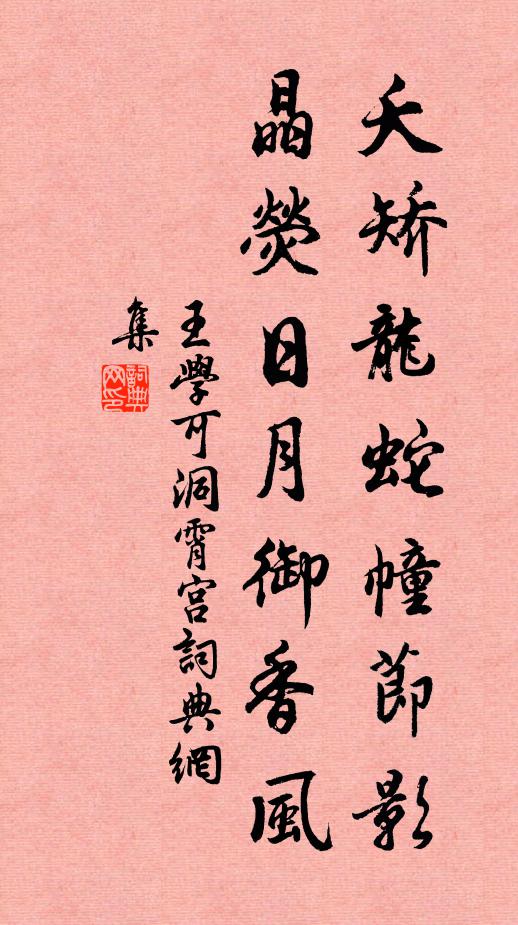 夭矯龍蛇幢節影
晶熒日月御香風
王學可洞霄宮詞典網
集
詞典
网印